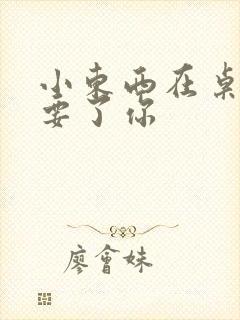 小东西在桌
要了你
廖會妹